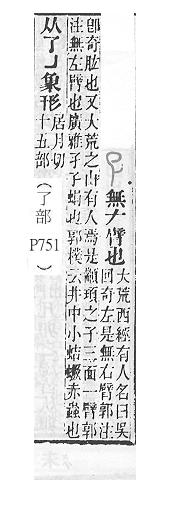 無𠂇臂也
大荒西經有人名曰吳
回奇左是無右臂郭注
卽奇肱也又大荒之山有人焉是顓頊之子三面一臂郭
注無左臂也廣雅孑孒蜎也郭樸云井中小蛣蟩赤蟲也
从了𠄌象形
居月切
十五部
（了部
P751）